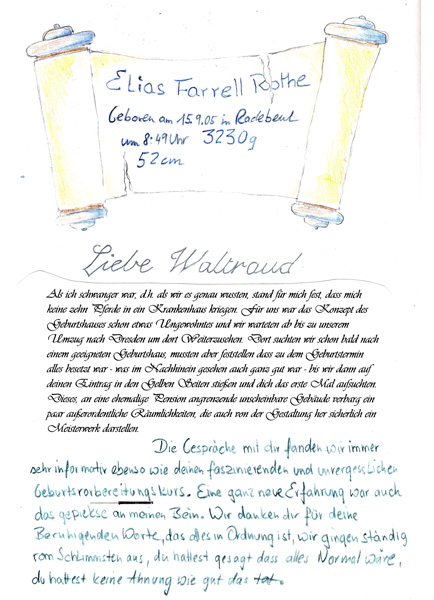 Elias Farrell Rothe
Geboren am 15.9.05 in Radebeul
um 8:49 Uhr 3230g
52cm
Liebe Waltraud
Als ich schwanger war, d.h. als wir es genau wussten, stand für mich fest, dass mich
keine zehn Pferde in ein Krankenhaus kriegen. Für uns war das Konzept des
Geburtshauses schon etwas Ungewohntes und wir warteten ab bis zu unserem
Umzug nach Dresden um dort Weiterzusehen. Dort suchten wir schon bald nach
einem geeigneten Geburtshaus, mussten aber feststellen dass zu dem Geburtstermin
alles besetzt war - was im Nachhinein gesehen auch ganz gut war - bis wir dann auf
deinen Eintrag in den Gelben Seiten stießen und dich das erste Mal aufsuchten.
Dieses, an eine ehemalige Pension angrenzende unscheinbare Gebäude verbarg ein
paar außerordentliche Räumlichkeiten, die auch von der Gestaltung her sicherlich ein
Meisterwerk darstellen.
Die Gespräche mit dir fanden wir immer
sehr informativ ebenso wie deinen faszinierenden und unvergesslichen
Geburtsvorbereitungskurs. Eine ganz neue Erfahrung war auch
das gepiekse an meinen Bein. Wir danken dir für deine
Beruhigenden Worte, das alles in Ordnung ist, wir gingen ständig
vom Schlimmsten aus, du hattest gesagt dass alles Normal wäre,
du hattest keine Ahnung wie gut das tat.